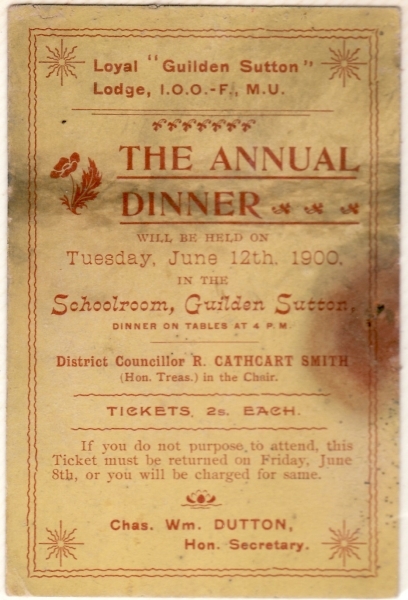 Loyal "Guilden Sutton"
Lodge, I.O.O.-F., M.U.
THE ANNUAL
DINNER
WILL BE HELD ON
Tuesday, June 12th, 1900,
IN THE
Schoolroom, Guilden Sutton,
DINNER ON TABLES AT 4 P.M.
District Councillor R. CATHCART SMITH
(Hon. Treas.) in the Chair.
TICKETS, 2s. EACH.
If you do not purpose to attend, this
Ticket must be returned on Friday, June
8th, or you will be charged for same.
Chas. Wm. DUTTON,
Hon. Secretary.